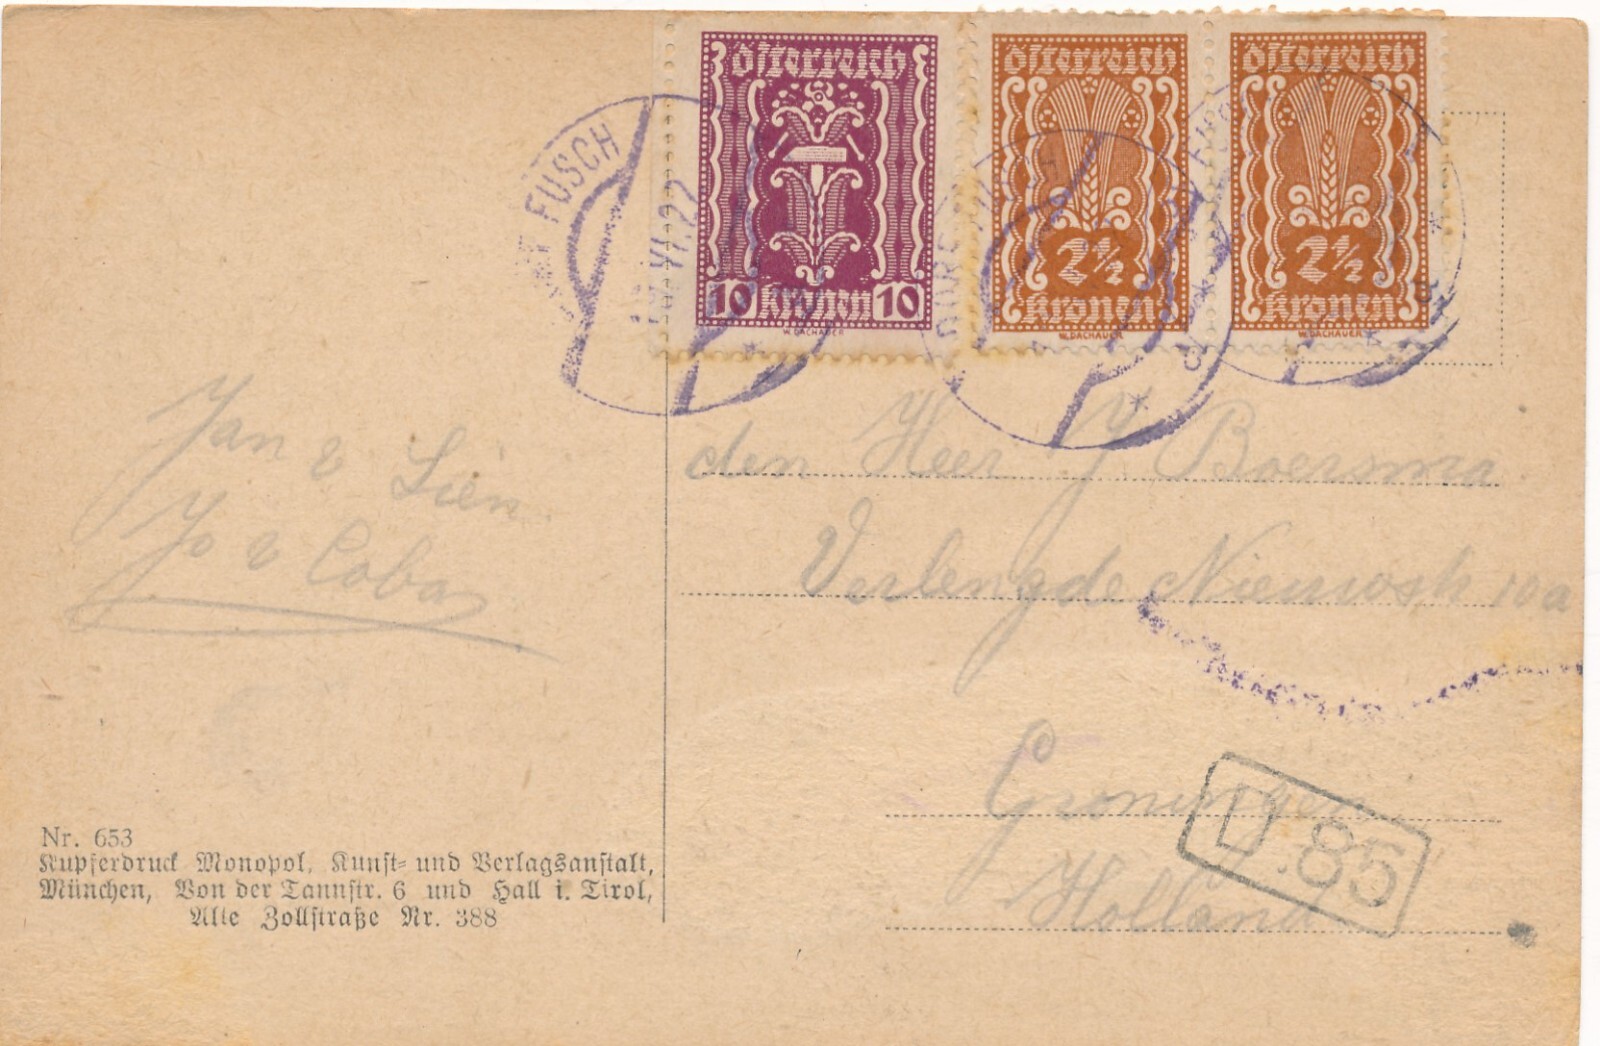 österreich
10 kronen 10
W. DACHAUER
österreich
2½
kronen
W. DACHAUER
österreich
2½
kronen
W. DACHAUER
DORF FUSCH
VI.22
DORF FUSCH
Jan & Lien
Jo & Coba
den Heer J Boersma
Verlengde Nieuwstr 10a
Groningen
Holland
D.85
Nr. 653
Kupferdruck Monopol, Kunst- und Verlagsanstalt,
München, Von der Tannstr. 6 und Hall i. Tirol,
Alte Zollstraße Nr. 388